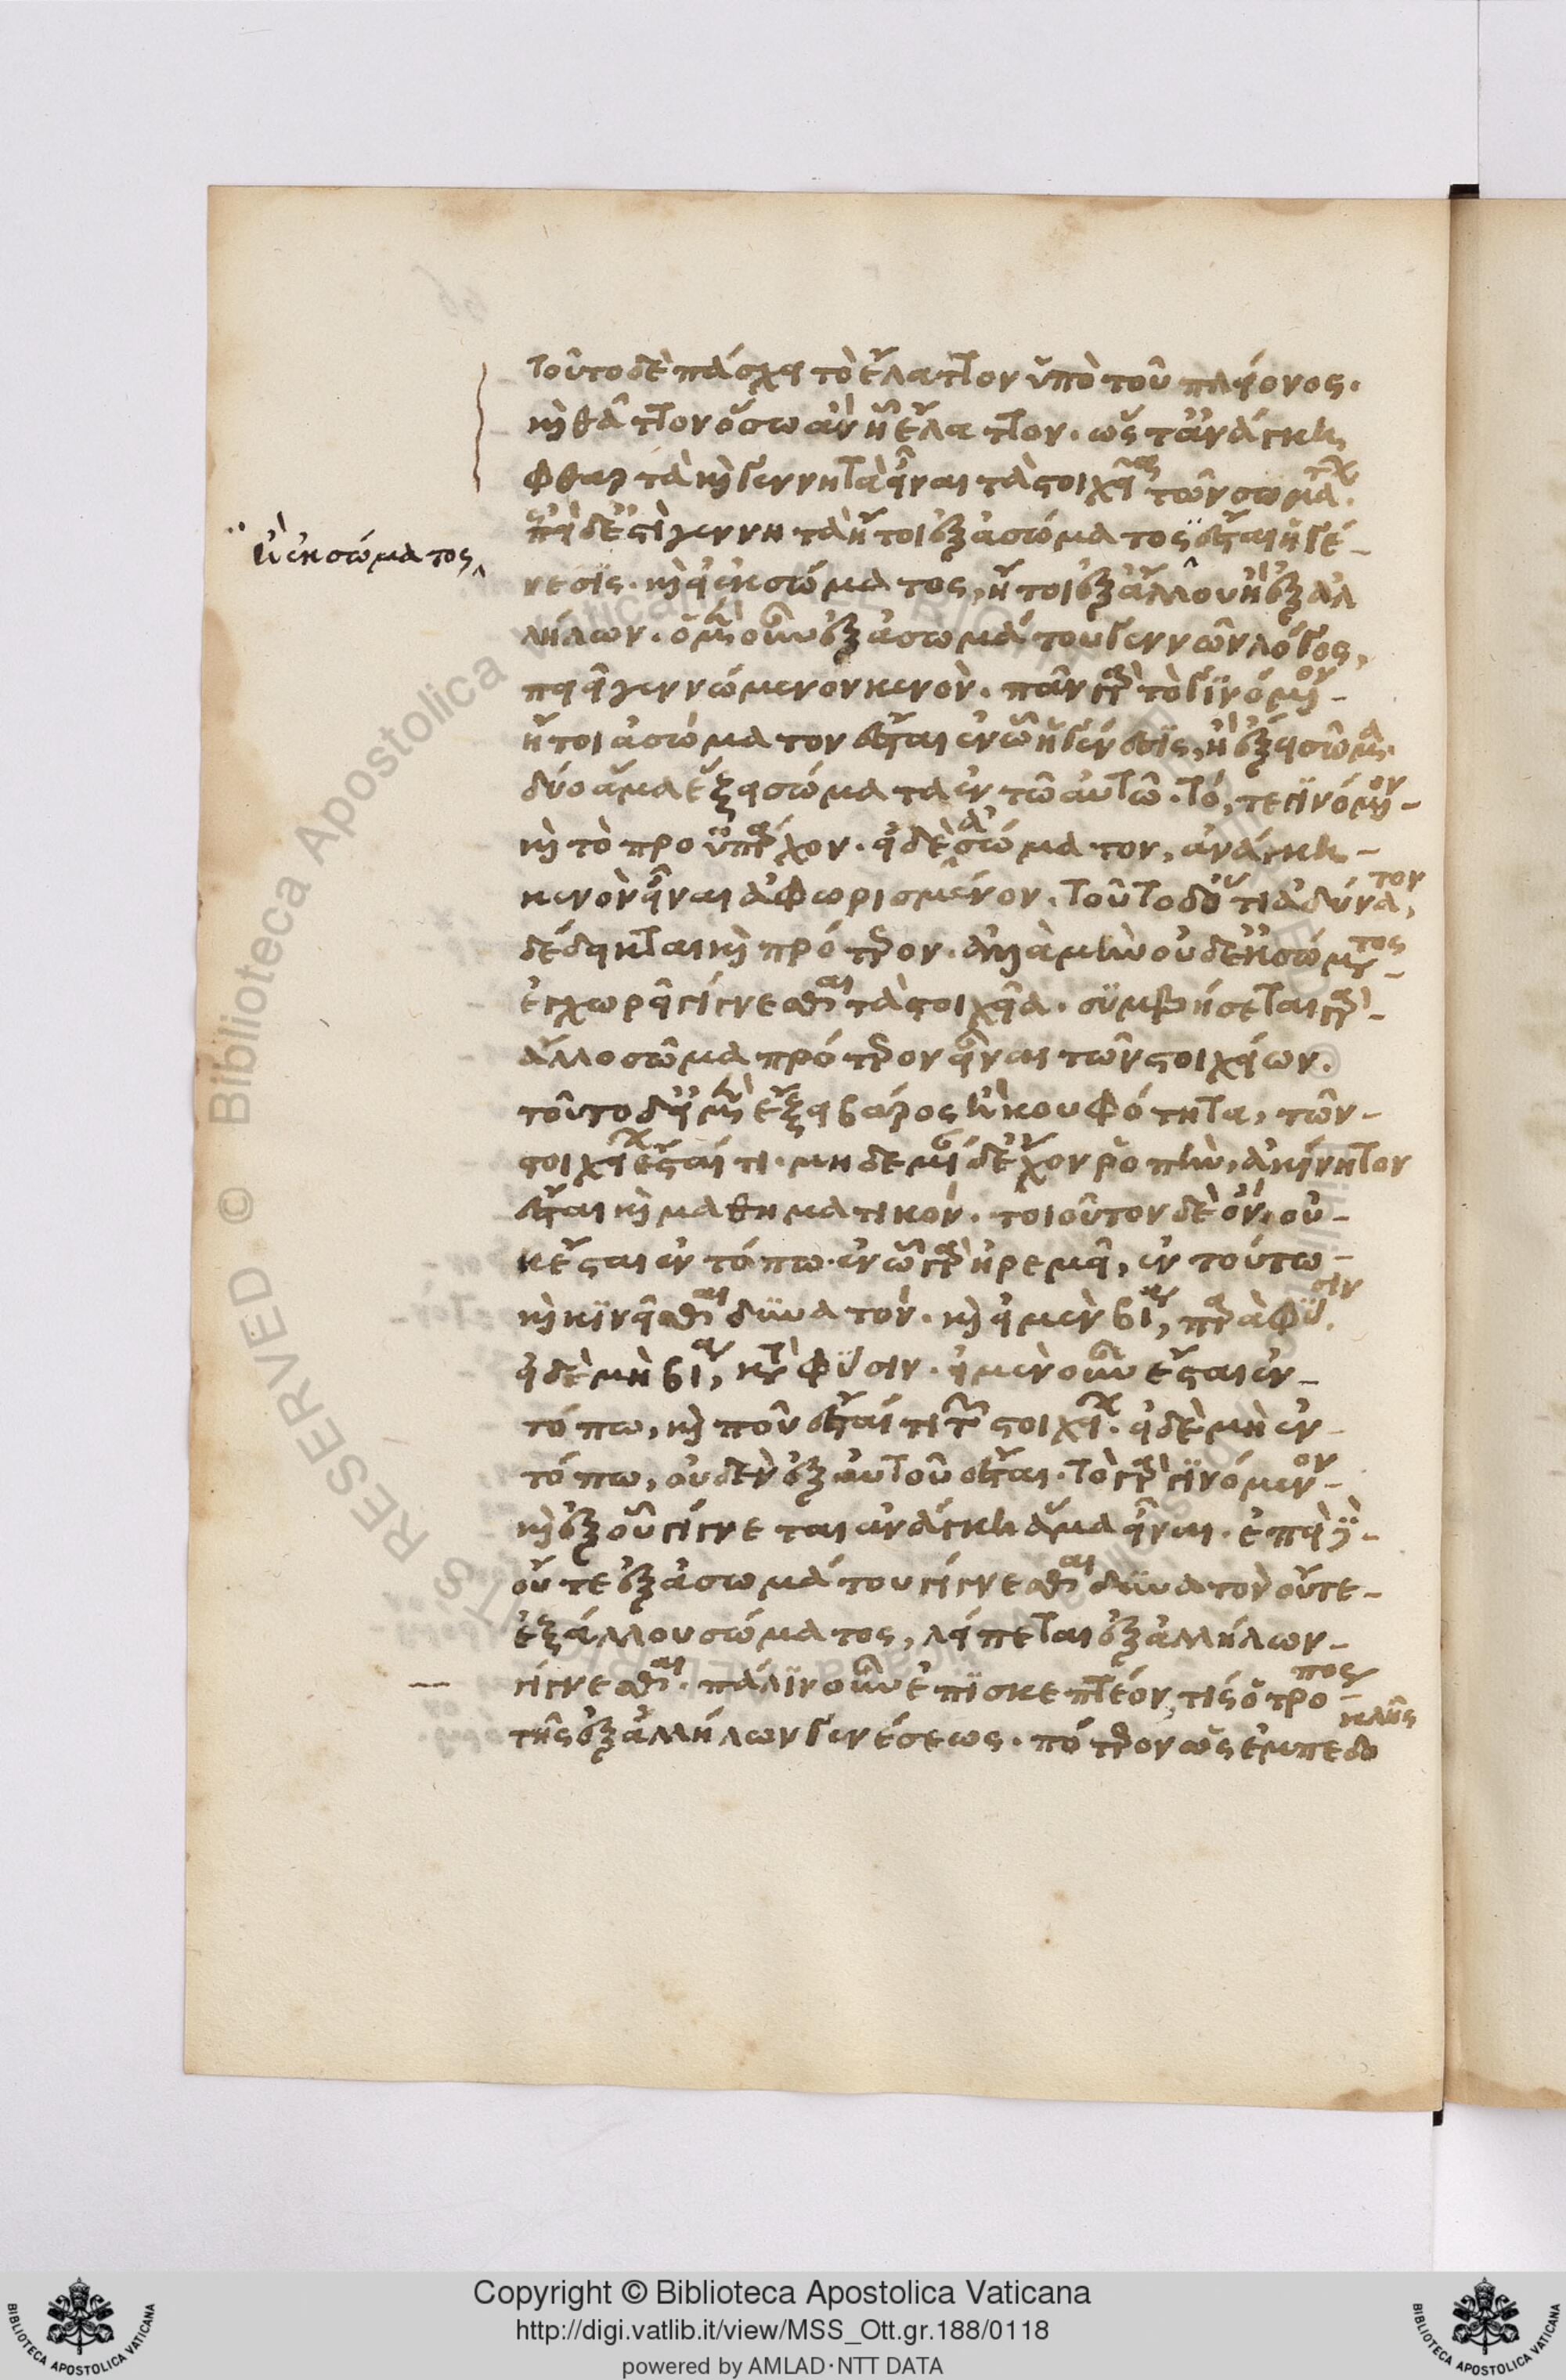 τοῦτο δὲ πάσχει τὸ ἔλαττον ὑπὸ τοῦ πλείονος.
καὶ θᾶττον ὅσω ἂν ἦ ἔλαττον. ὥστ' ἀνάγκη
φθαρτὰ καὶ γεννητὰ εἶναι τὰ στοιχεῖα τῶν σωμάτων.
ἐπεὶ δ' ἐστὶ γεννητὰ ἤτοι ἐξ ἀσωμάτου ἔσται ἡ γέ-
ἢ ἐκ σώματος
νεσις. καὶ εἰ ἐκ σώματος, ἤτοι ἐξ ἄλλου ἢ ἐξ ἀλ
λήλων. ὁ μὲν οὖν ἐξ ἀσωμάτου γεννῶν λόγος,
ποιεῖ γεννώμενον κενόν. πᾶν γὰρ τὸ γινόμενον
ἤτοι ἀσώματον ἔσται ἐν ᾧ ἡ γένεσις, ἢ ἕξει σῶμα.
δύο ἅμα ἕξει σώματα ἐν τῶ αὐτῶ. τό, τε γινόμενον
καὶ τὸ προϋπάρχον. εἰ δὲ ἀσώματον, ἀνάγκη
κενὸν εἶναι ἀφωρισμένον. τοῦτο δ' ὅτι ἀδύνατον,
δέδεικται καὶ πρότερον. ἀλλὰ μὴν οὐδ' ἐκ σώματος
ἐγχωρεῖ γίγνεσθαι τὰ στοιχεῖα. συμβήσεται γὰρ
ἄλλο σῶμα πρότερον εἶναι τῶν στοιχείων.
τοῦτο δ' εἰ μὲν ἕξει βάρος ἢ κουφότητα, τῶν
στοιχείων ἔσται τι. μηδεμίαν δ' ἔχον ῥοπὴν, ἀκίνητον
ἔσται καὶ μαθηματικόν. τοιοῦτον δὲ ὂν, οὐ-
κ ἔσται ἐν τόπω. ἐν ᾧ γὰρ ἠρεμεῖ, ἐν τούτω
καὶ κινεῖσθαι δυνατόν. καὶ εἰ μὲν βίᾳ, παρὰ φύσιν.
εἰ δὲ μὴ βίᾳ, κατὰ φύσιν. εἰ μὲν οὖν ἔσται ἐν
τόπω, καὶ ποῦ ἔσται τι τῶν στοιχείων. εἰ δὲ μὴ ἐν
τόπω, οὐδὲν ἐξ αὐτοῦ ἔσται. τὸ γὰρ γινόμενον
καὶ ἐξ οὗ γίγνεται ἀνάγκη ἅμα εἶναι. ἐπεὶ δ'
οὔτε ἐξ ἀσωμάτου γίγνεσθαι δυνατὸν οὔτε
ἐξ ἄλλου σώματος, λείπεται ἐξ ἀλλήλων
γίγνεσθαι. πάλιν οὖν ἐπισκεπτέον, τίς ὁ τρόπος
τῆς ἐξ ἀλλήλων γενέσεως. πότερον ὡς ἐμπεδοκλῆς
Copyright © Biblioteca Apostolica Vaticana
http://digi.vatlib.it/view/MSS_Ott.gr.188/0118
powered by AMLAD·NTT DATA